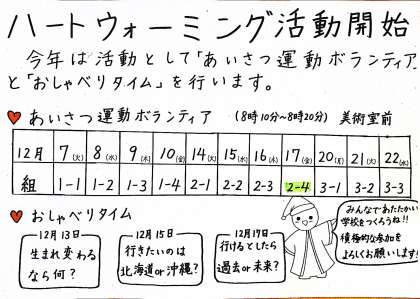 ハートウォーミング活動開始
今年は活動として「あいさつ運動ボランティア」
と「おしゃべりタイム」を行います。
あいさつ運動ボランティア (8時10分~8時20分) 美術室前
12月 7(火) 8(水) 9(木) 10(金) 14(火) 15(水) 16(木) 17(金) 20(月) 21(火) 22(水)
組 1-1 1-2 1-3 1-4 2-1 2-2 2-3 2-4 3-1 3-2 3-3
おしゃべりタイム
12月13日
生まれ変わる
なら何?
12月15日
行きたいのは
北海道or沖縄?
12月17日
行けるとしたら
過去or未来?
みんなであたたかい
学校をつくろうね!!
積極的な参加を
よろしくお願いします!